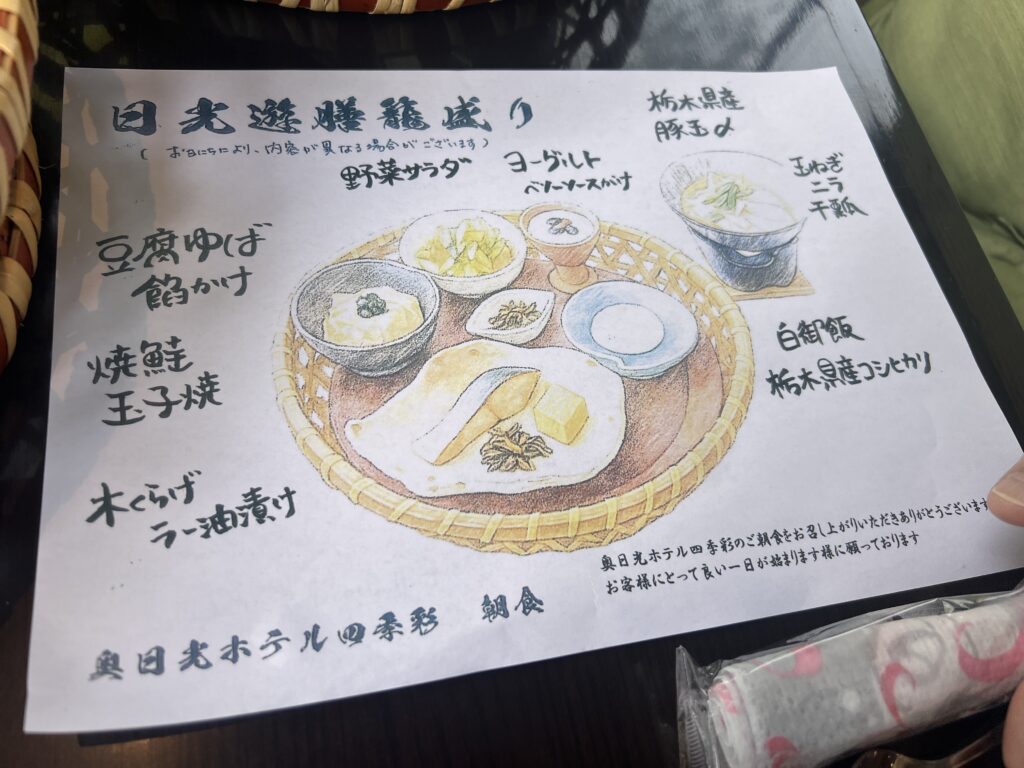 日光遊膳籠盛り
( お日にちにより、内容が異なる場合がございます )
野菜サラダ
ヨーグルト
ベリーソースがけ
栃木県産
豚玉〆
玉ねぎ
ニラ
干瓢
豆腐ゆば
餡かけ
焼鮭
玉子焼
白御飯
栃木県産コシヒカリ
木くらげ
ラー油漬け
奥日光ホテル四季彩のご朝食をお召し上がりいただきありがとうございます
お客様にとって良い一日が始まります様に願っております
奥日光ホテル四季彩 朝食